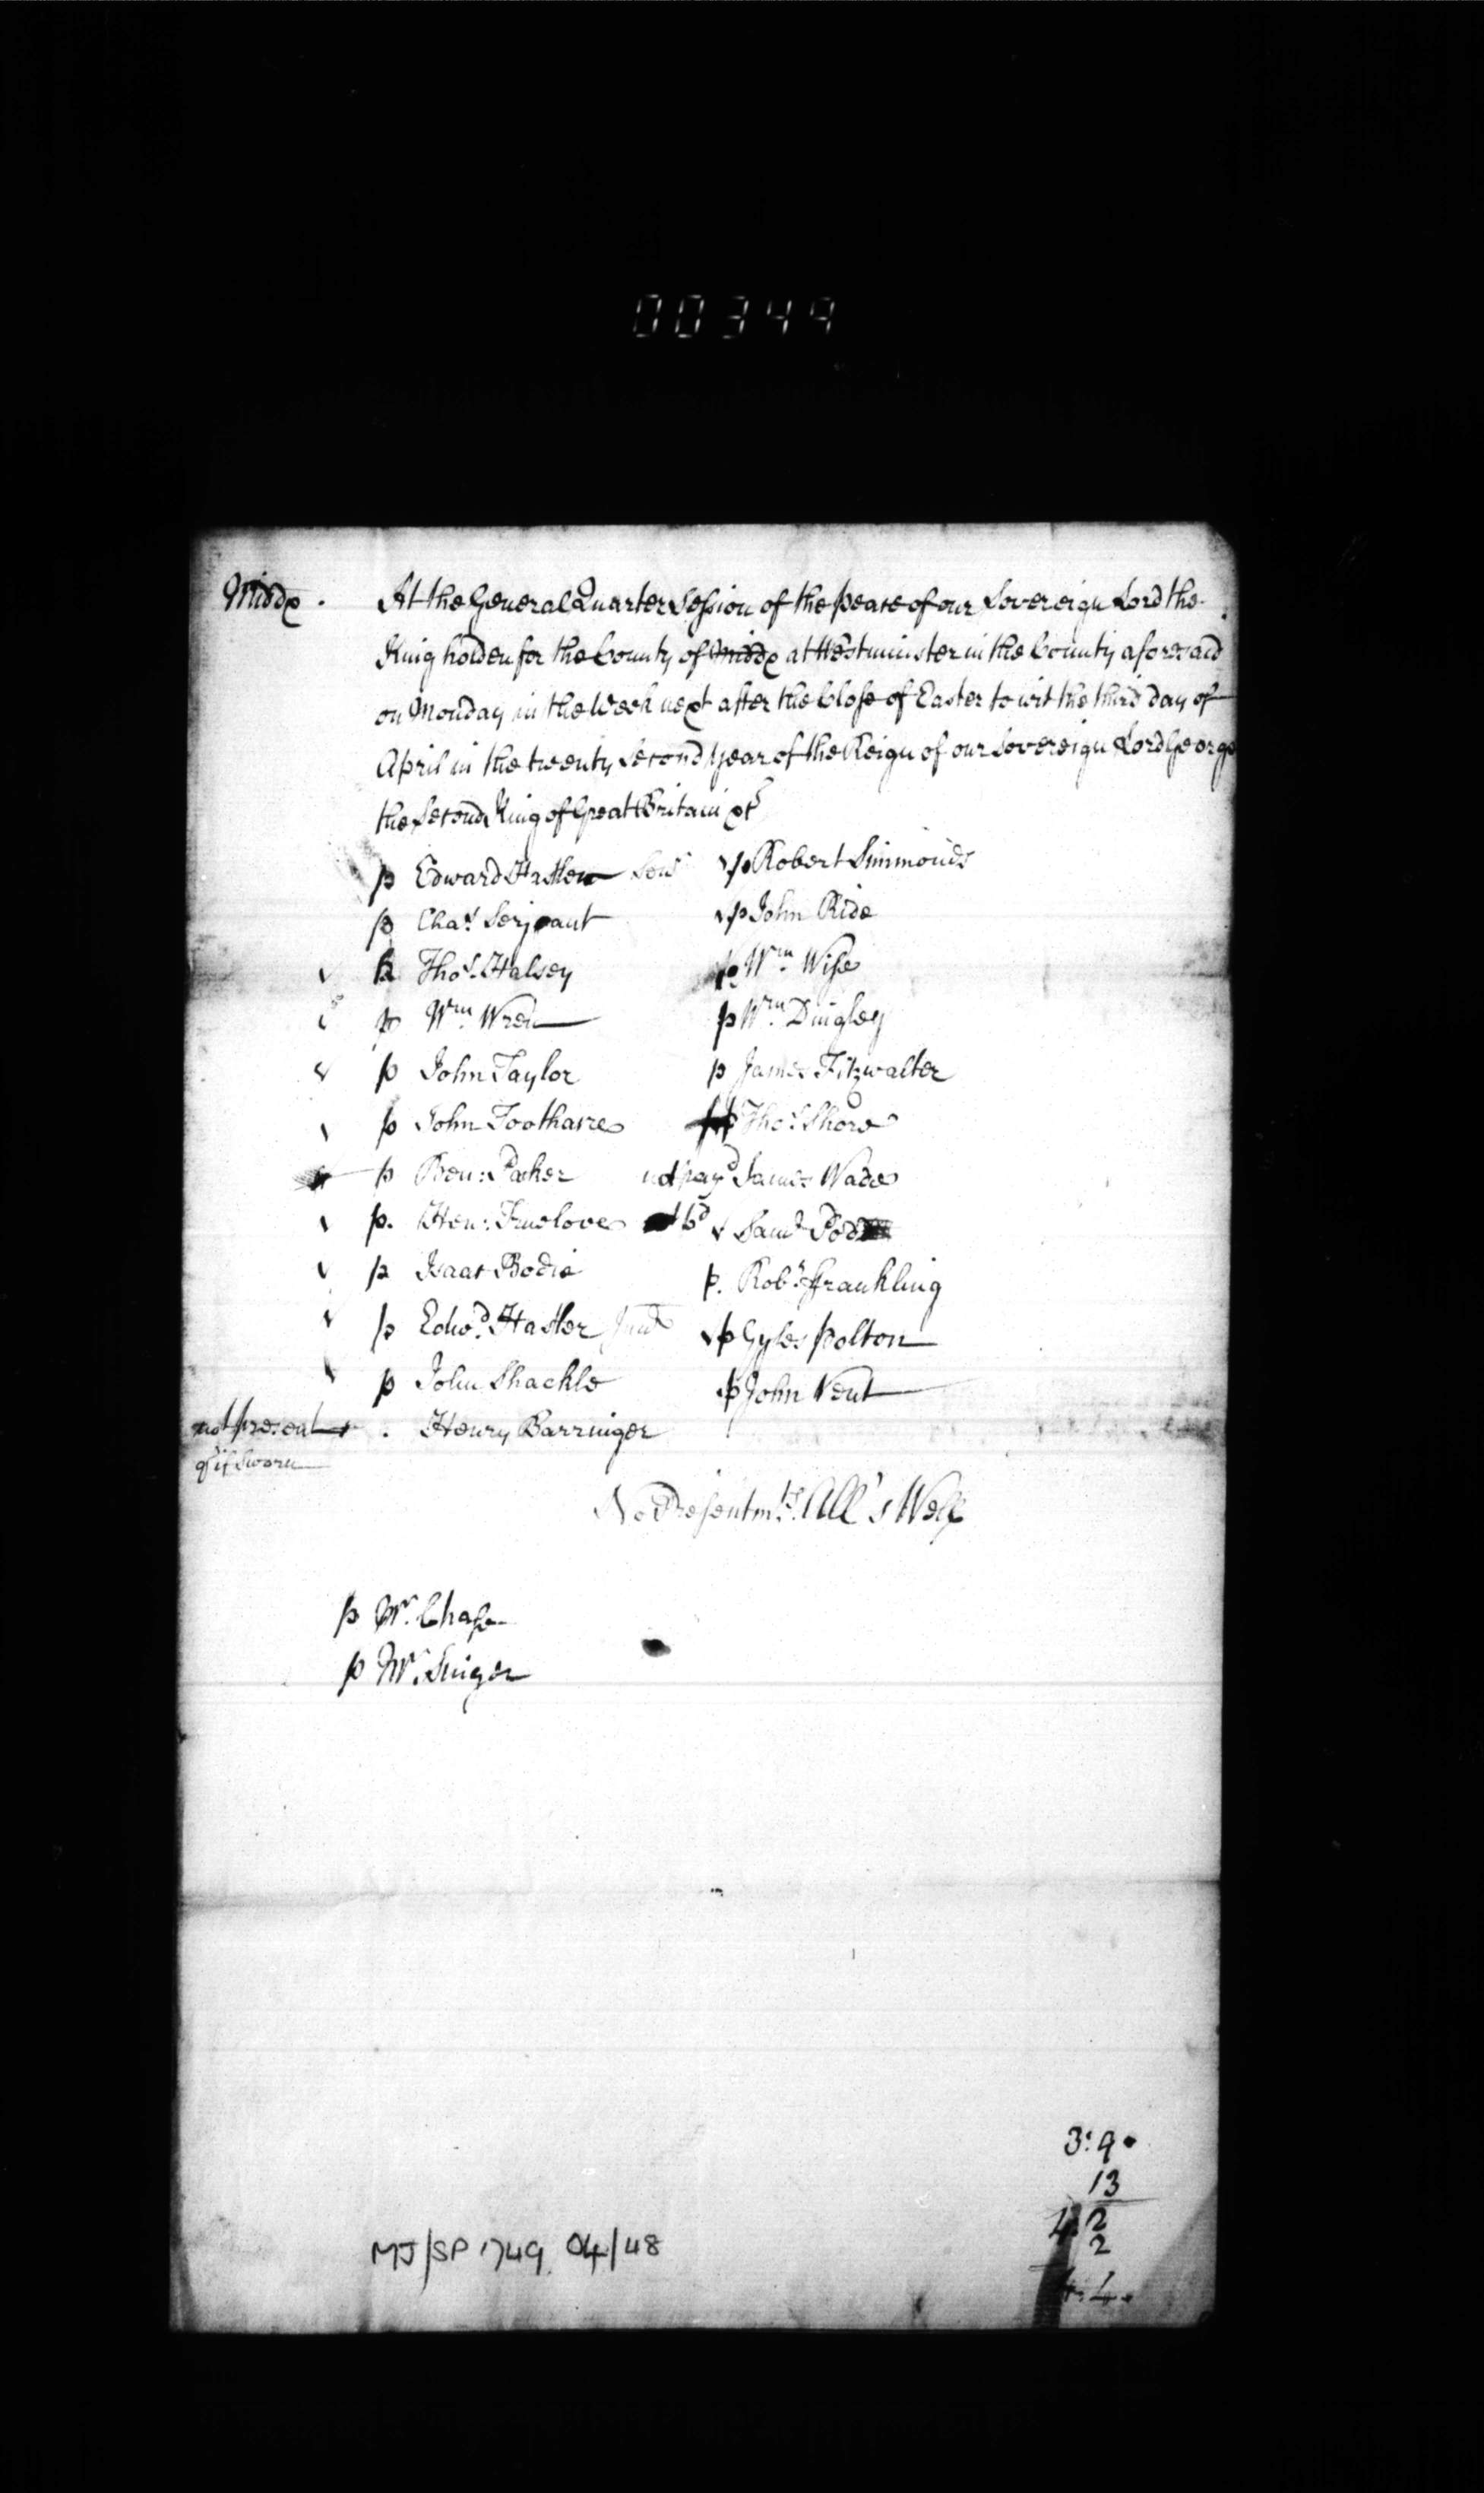 00349
Middx. At the General Quarter Session of the peace of our Sovereign Lord the
King holden for the County of Middx at Westminster in the County aforesaid
on Monday in the Week next after the Close of Easter to wit the third day of
April in the twenty second year of the Reign of our Sovereign Lord George
the Second King of Great Britain &c
p Edward Hasler Senr
p Chas. Serjeant
p Thos. Halsey
p Wm. Wren
p John Taylor
p John Toothaire
p Ben: Parker
p. Hen: Truelove
p Isaac Bodie
p Edwd. Hasler Junr
p John Shackle
not present Henry Barringer
qr if sworn
p Robert Simmonds
p John Ride
p Wm. Wise
p Wm. Dingley
p James Fitzwalter
Thos. Shore
not payd James Wade
Saml
p. Robt. Frankling
p Gyles polton
p John Vent
No Presentmts. All's Well
p Mr. Chase
p Mr. Singer
3:9
13
4 2
2
4:4.
MJ/SP 1749 04/48